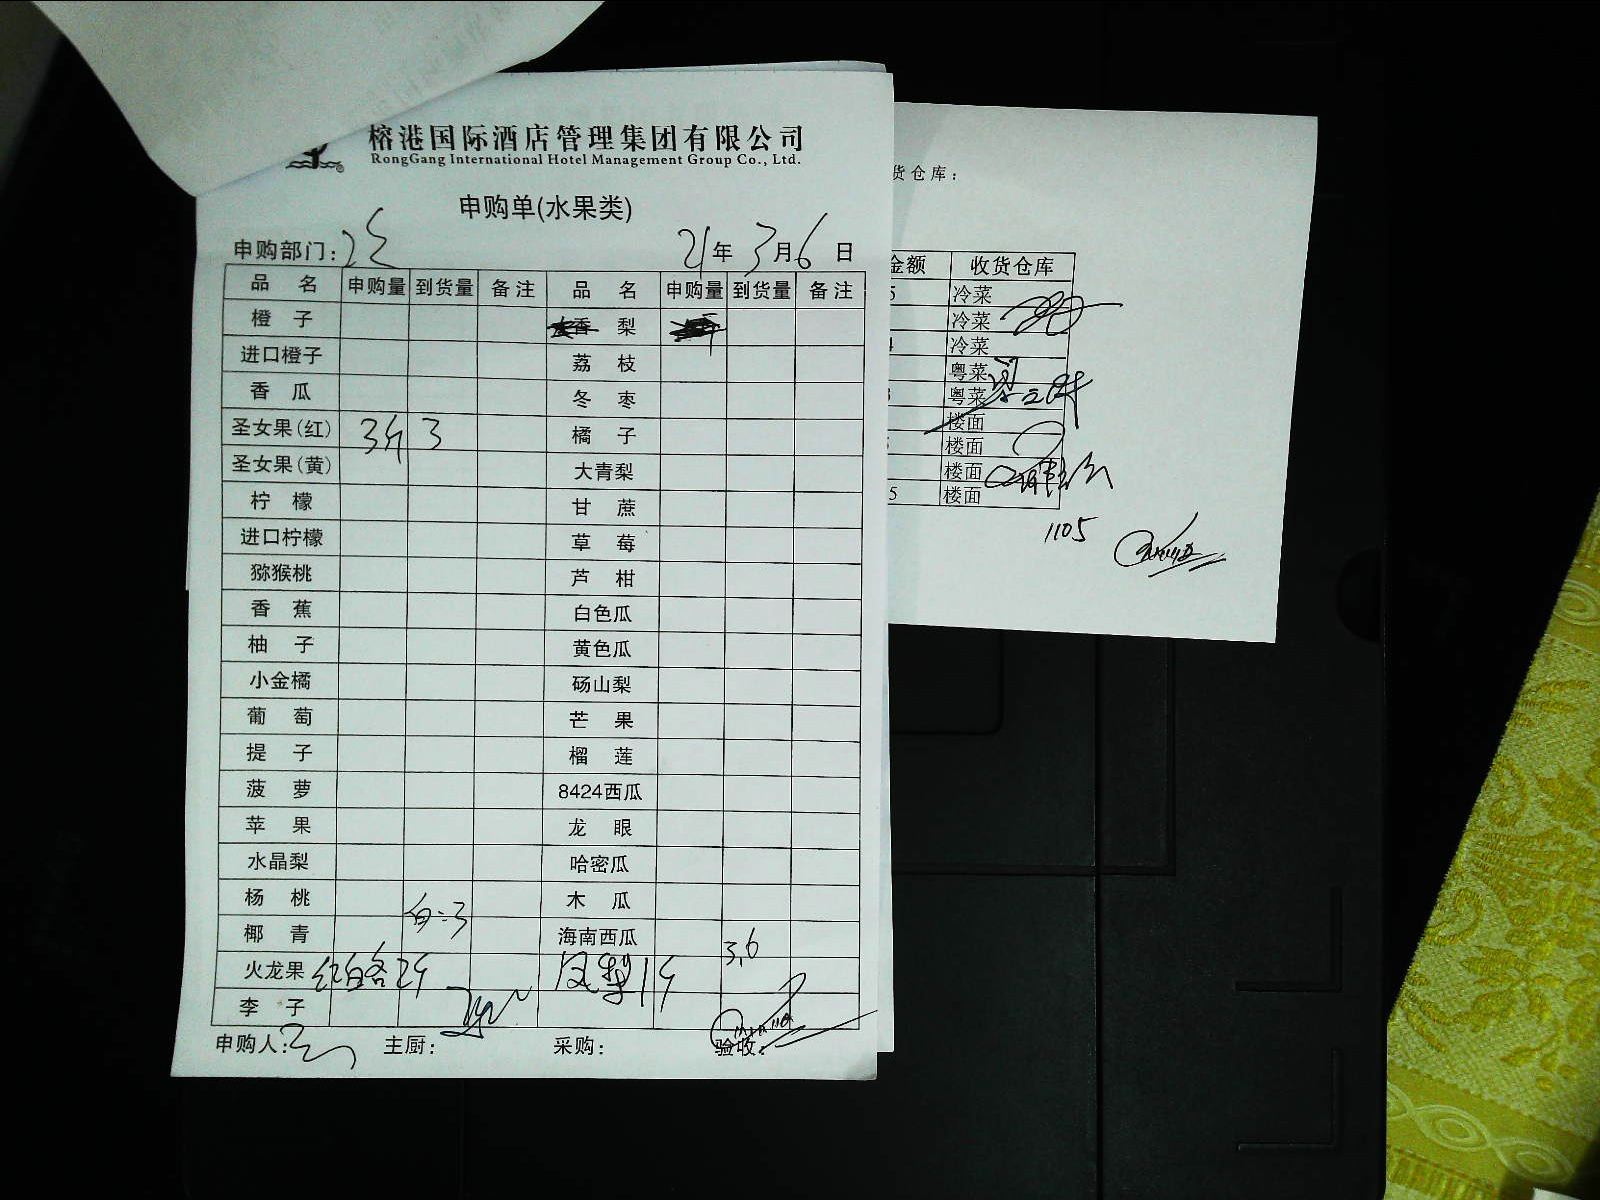 榕港国际酒店管理集团有限公司
RongGang International Hotel Management Group Co., Ltd.
申购单(水果类)
申购部门： 21年 3月 6日
品 名 申购量 到货量 备注 品 名 申购量 到货量 备注
橙 子 香 梨
进口橙子 荔 枝
香 瓜 冬 枣
圣女果(红) 3斤 3 橘 子
圣女果(黄) 大青梨
柠 檬 甘 蔗
进口柠檬 草 莓
猕猴桃 芦 柑
香 蕉 白色瓜
柚 子 黄色瓜
小金橘 砀山梨
葡 萄 芒 果
提 子 榴 莲
菠 萝 8424西瓜
苹 果 龙 眼
水晶梨 哈密瓜
杨 桃 白:3 木 瓜
椰 青 海南西瓜 3.6
火龙果 红白各2个 凤梨1个
李 子
申购人： 主厨： 采购： 验收：
货仓库：
金额 收货仓库
5 冷菜
冷菜
4 冷菜
粤菜
粤菜
楼面
楼面
楼面
5 楼面
1105